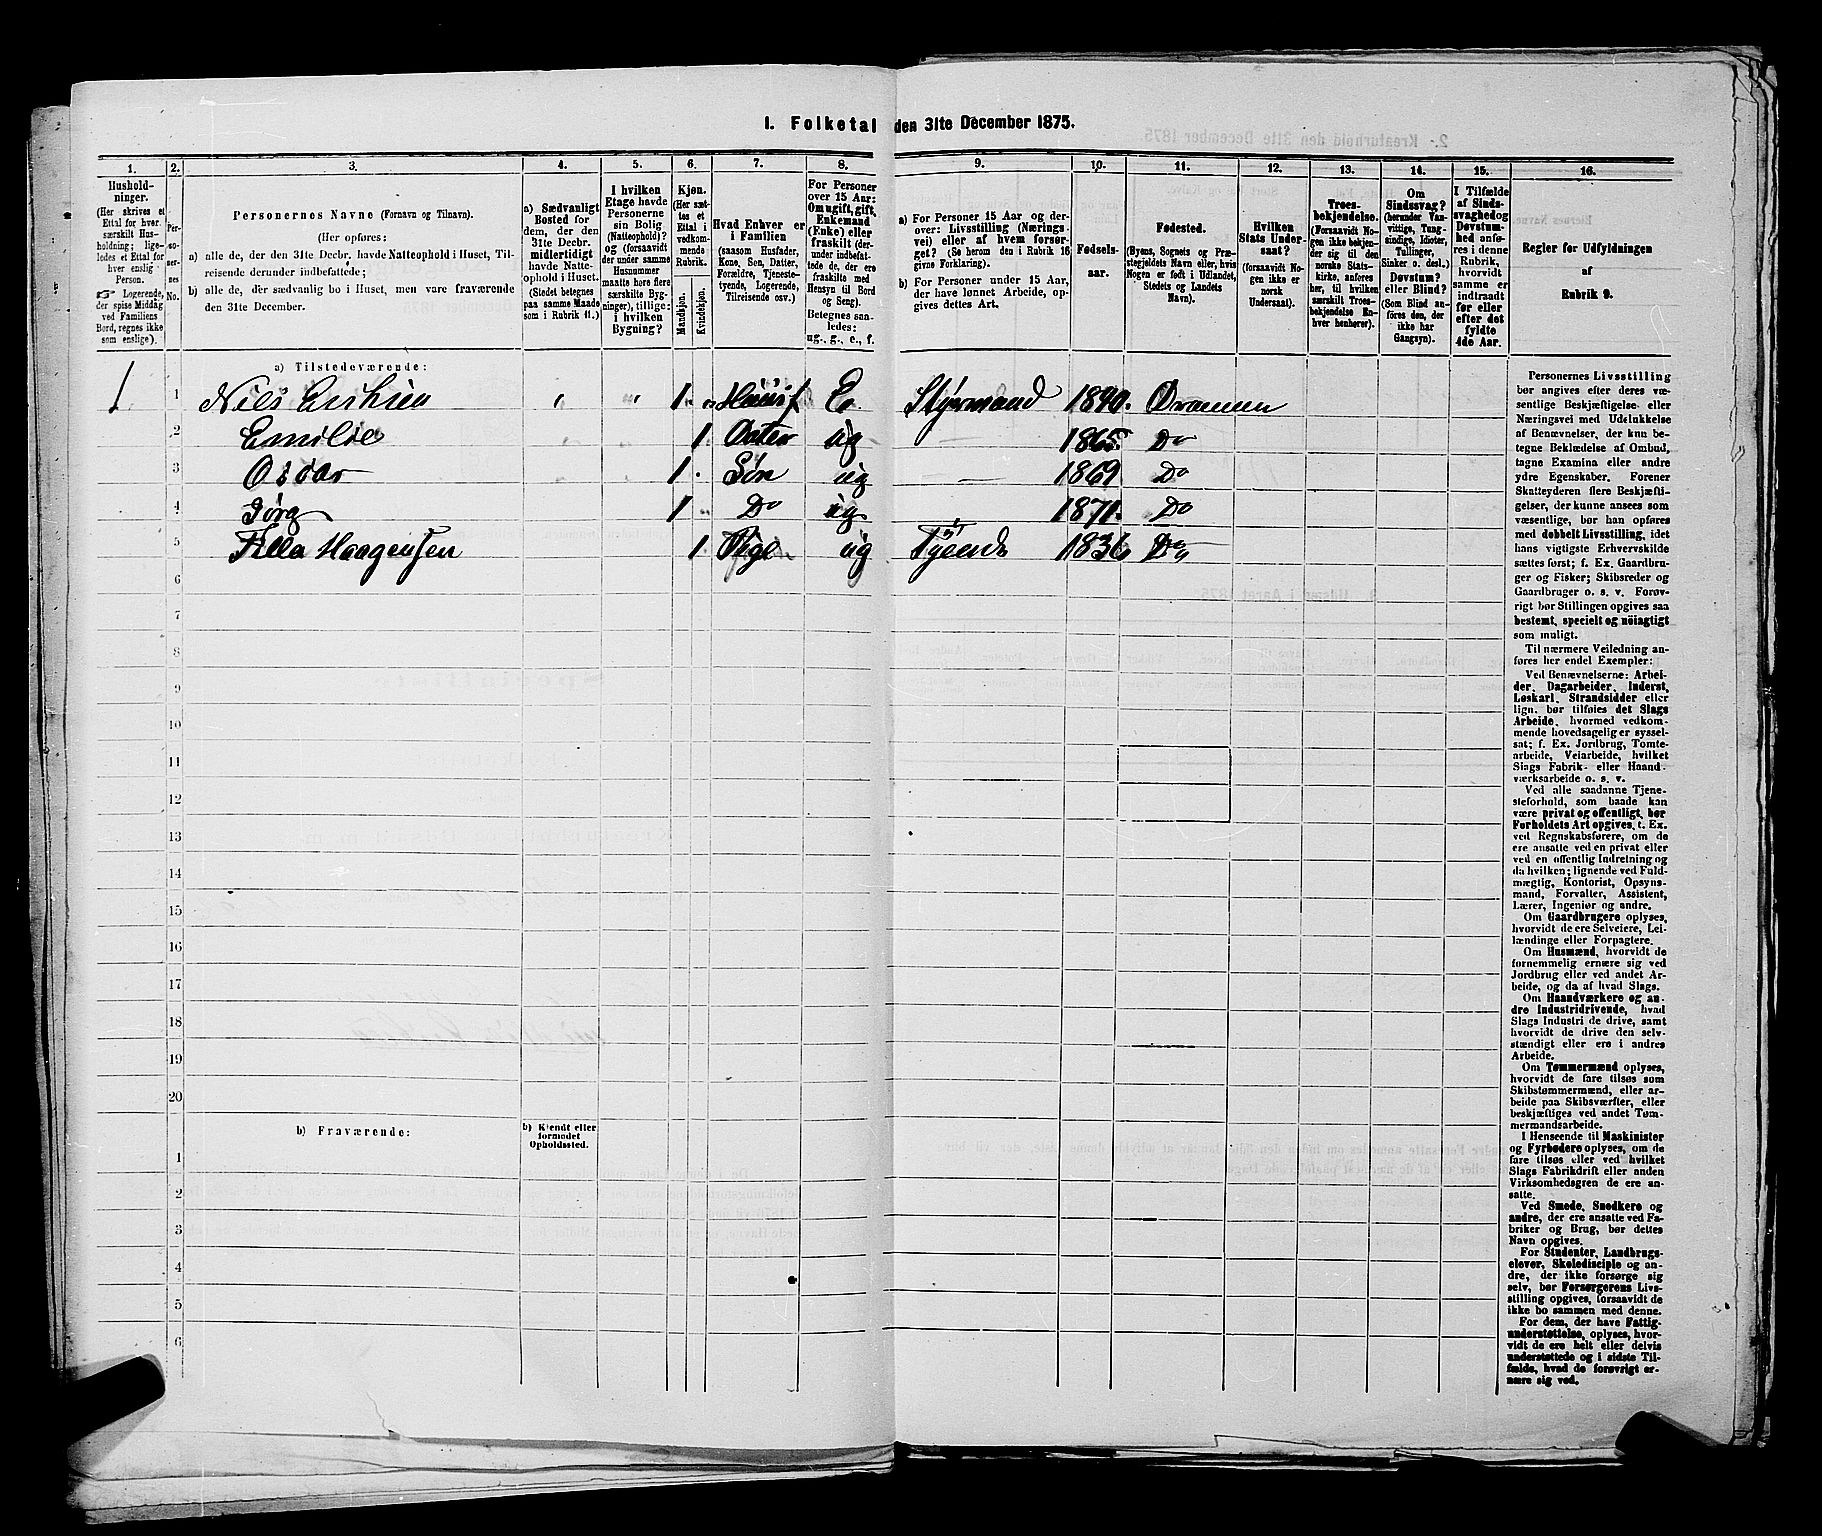 1. Folketal den 31te December 1875.
1. 2. 3. 4. 5. 6. 7. 8. 9. 10. 11. 12. 13. 14. 15. 16.
Hushold-
ninger.
(Her skrives et
Ettal for hver
særskilt Hus-
holdning; lige-
ledes et Ettal for
hver enslig
Person.
☞ Logerende,
der spise Middag
ved Familiens
Bord, regnes ikke
som enslige).
Per-
so-
ner-
nes
No.
Personernes Navne (Fornavn og Tilnavn).
(Her opføres:
a) alle de, der den 31te Decbr. havde Natteophold i Huset, Til-
reisende derunder indbefattede;
b) alle de, der sædvanlig bo i Huset, men vare fraværende
den 31te December.
a) Sædvanligt
Bosted for
dem, der den
31te Decbr.
midlertidigt
havde Natte-
ophold i Huset.
(Stedet betegnes
paa samme Maade
som i Rubrik 11.)
I hvilken
Etage havde
Personerne
sin Bolig
(Natteophold)?
og (forsaavidt
der under samme
Husnummer
maatte høre flere
særskilte Byg-
ninger), tillige:
i hvilken
Bygning?
Kjøn.
(Her sæt-
tes et
Ettal i
vedkom-
mende
Rubrik.
Mandkjøn.
Kvindekjøn.
Hvad Enhver er
i Familien
(saasom Husfader,
Kone, Søn, Datter,
Forældre, Tjeneste-
tyende, Logerende,
Tilreisende osv.)
For Personer
over 15 Aar:
Om ugift, gift,
Enkemand
(Enke) eller
fraskilt (der-
under indbefat-
tede de, der ere
fraskilte med
Hensyn til Bord
og Seng).
Betegnes saa-
ledes:
ug., g., e., f.
a) For Personer 15 Aar og der-
over: Livsstilling (Nærings-
vei) eller af hvem forsør-
get? (Se herom den i Rubrik 16
givne Forklaring).
b) For Personer under 15 Aar,
der have lønnet Arbeide, op-
gives dettes Art.
Fødsels-
aar.
Fødested.
(Byens, Sognets og Præ-
stegjeldets Navn eller, hvis
Nogen er født i Udlandet,
Stedets og Landets
Navn).
Hvilken
Stats Under-
saat?
(forsaavidt No-
gen ikke er
norsk
Undersaat).
Troes-
bekjendelse.
(Forsaavidt No-
gen ikke bekjen-
der sig til den
norske Stats-
kirke, anføres
her, til hvilken
særskilt Troes-
bekjendelse En-
hver henhører).
Om
Sindssvag?
(herunder Van-
vittige, Tung-
sindige, Idioter,
Tullinger,
Sinker o. desl.)
Døvstum?
eller Blind?
(Som Blind an-
føres den, der
ikke har
Gangsyn).
I Tilfælde
af Sinds-
svaghed og
Døvstum-
hed anfø-
res i denne
Rubrik,
hvorvidt
samme er
indtraadt
før eller
efter det
fyldte
4de Aar.
Regler for Udfyldningen
af
Rubrik 9.
a) Tilstedeværende:
1 1 Nils Erichsen „ „ 1 „ Huusf E. Styrmand 1840. Dramen
2 Emilie 1 Datter ug — 1865 Do
3 Oscar 1 Søn ug — 1869 Do
4 Jørg 1 Do ug 1871 Do
5 Haagensen 1 Pige ug Tyende 1836 Do
6
7
8
9
10
11
12
13
14
15
16
17
18
19
20
b) Fraværende:
b) Kjendt eller
formodet
Opholdssted.
1
2
3
4
5
6
Personernes Livsstilling
bør angives efter deres væ-
sentlige Beskjæftigelse eller
Næringsvei med Udelukkelse
af Benævnelser, der kun be-
tegne Beklædelse af Ombud,
tagne Examina eller andre
ydre Egenskaber. Forener
Skatteyderen flere Beskjæfti-
gelser, der kunne ansees som
væsentlige, bør han opføres
med dobbelt Livsstilling, idet
hans vigtigste Erhvervskilde
sættes først; f. Ex. Gaardbru-
ger og Fisker; Skibsreder og
Gaardbruger o. s. v. Forøv-
rigt bør Stillingen opgives saa
bestemt, specielt og nöiagtigt
som muligt.
Til nærmere Veiledning an-
føres her endel Exempler:
Ved Benævnelserne: Arbei-
der, Dagarbeider, Inderst,
Løskarl, Strandsidder eller
lign. bør tilføies det Slags
Arbeide, hvormed vedkom-
mende hovedsagelig er syssel-
sat; f. Ex. Jordbrug, Tomte-
arbeide, Veiarbeide, hvilket
Slags Fabrik- eller Haand-
værksarbeide o. s. v.
Ved alle saadanne Tjene-
steforhold, som baade kan
være privat og offentligt, bør
Forholdets Art opgives, t. Ex.
ved Regnskabsførere, om de
ere ansatte ved en privat eller
ved en offentlig Indretning og
da hvilken; lignende ved Fuld-
mægtig, Kontorist, Opsyns-
mand, Forvalter, Assistent,
Lærer, Ingeniør og andre.
Om Gaardbrugere oplyses,
hvorvidt de ere Selveiere, Lei-
lændinge eller Forpagtere.
Om Husmænd, hvorvidt de
fornemmelig ernære sig ved
Jordbrug eller ved andet Ar-
beide, og da af hvad Slags.
Om Haandværkere og an-
dre Industridrivende, hvad
Slags Industri de drive, samt
hvorvidt de drive den selv-
stændigt eller ere i andres
Arbeide.
Om Tømmermænd oplyses,
hvorvidt de fare tilsøs som
Skibstømmermænd, eller ar-
beide paa Skibsværfter, eller
beskjæftiges ved andet Tøm-
mermandsarbeide.
I Henseende til Maskinister
og Fyrbødere oplyses, om de
fare tilsøs eller ved hvilket
Slags Fabrikdrift eller anden
Virksomhedsgren de ere an-
satte.
Ved Smede, Snedkere og
andre, der ere ansatte ved Fa-
briker og Brug, bør dettes
Navn opgives.
For Studenter, Landbrugs-
elever, Skoledisciple og an-
dre, der ikke forsørge sig
selv, bør Forsørgerens Livs-
stilling opgives, forsaavidt de
ikke bo sammen med denne.
For dem, der have Fattig-
understøttelse, oplyses, hvor-
vidt de ere helt eller delvis
understøttede og i sidste Til-
fælde, hvad de forøvrigt er-
nære sig ved.